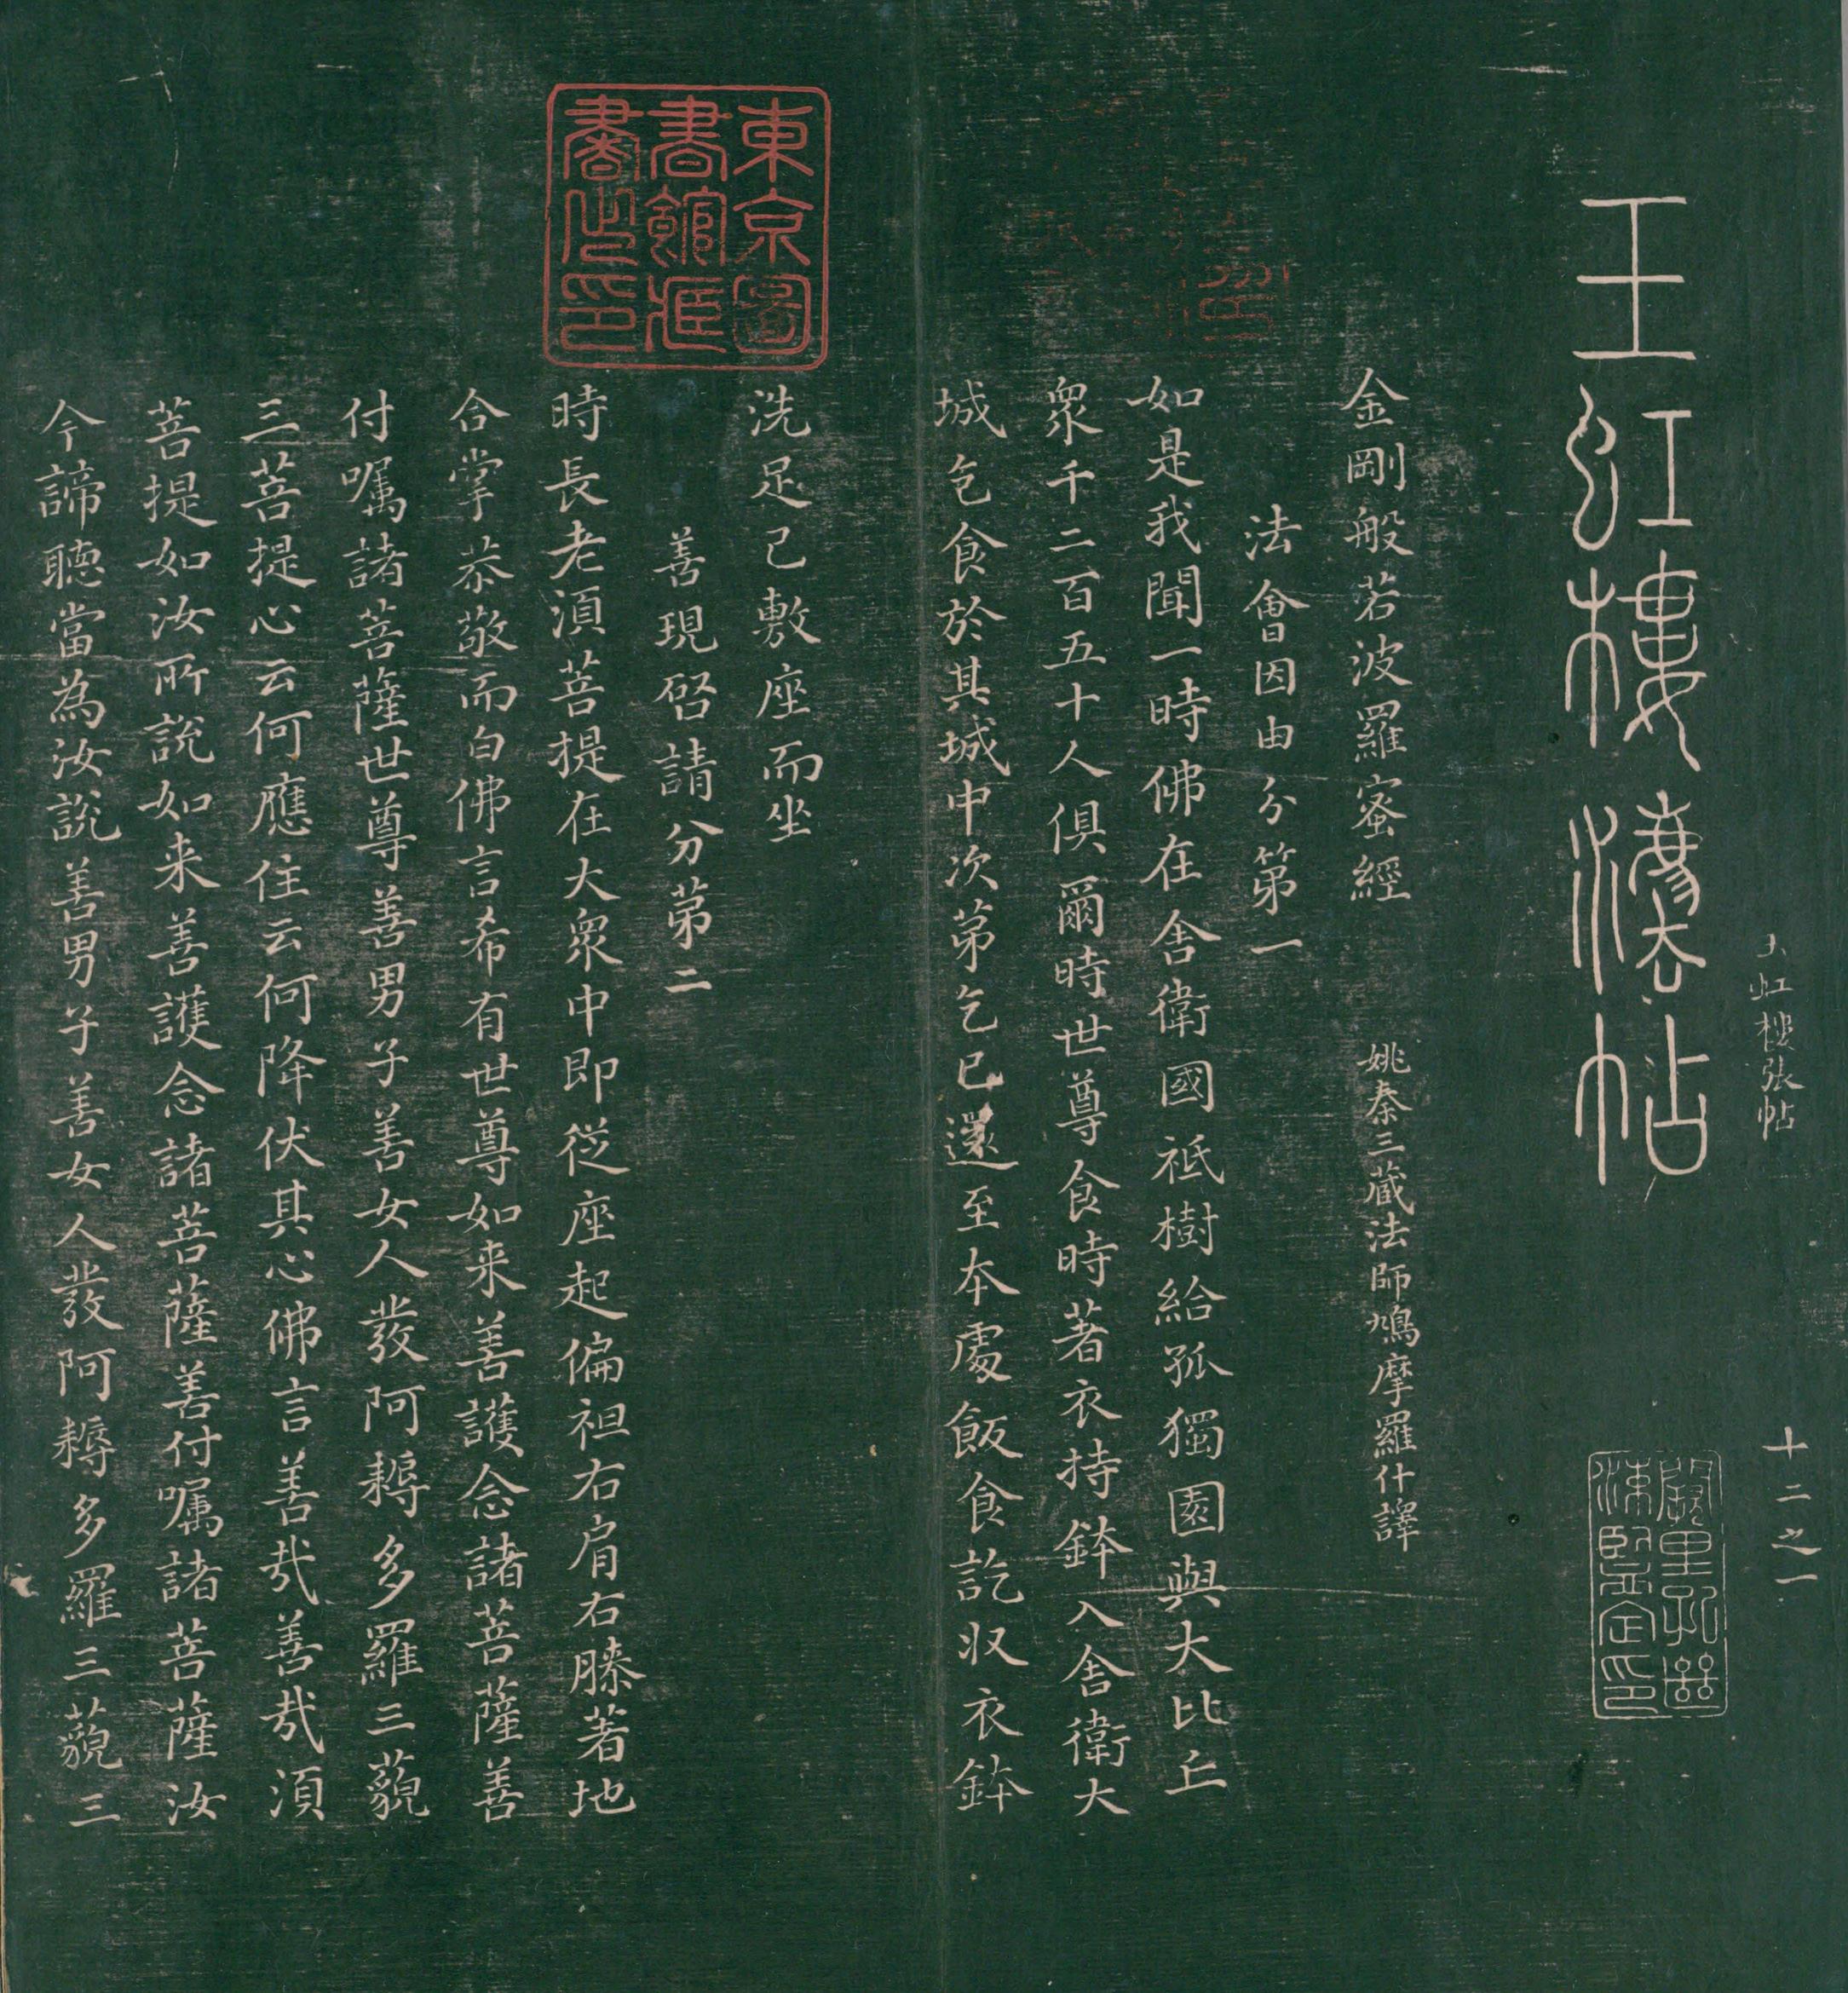 玉虹樓
十二之一
玉虹樓法帖
闕里孔繼
涑監定印
金剛般若波羅蜜經
姚秦三藏法師鳩摩羅什譯
法會因由分第一
如是我聞一時佛在舍衛國祇樹給孤獨園與大比丘
衆千二百五十人俱爾時世尊食時著衣持鉢入舍衛大
城乞食於其城中次苐乞已還至本處飯食訖收衣鉢
洗足已敷座而坐
善現啓請分苐二
時長老湏菩提在大衆中即從座起偏袒右肩右膝著地
合掌恭敬而白佛言希有世尊如来善護念諸菩薩善
付囑諸菩薩世尊善男子善女人發阿耨多羅三藐
三菩提心云何應住云何降伏其心佛言善哉善哉湏
菩提如汝所說如来善護念諸菩薩善付囑諸菩薩汝
今諦聽當為汝說善男子善女人發阿耨多羅三藐三
東京圖
書館藏
書之印